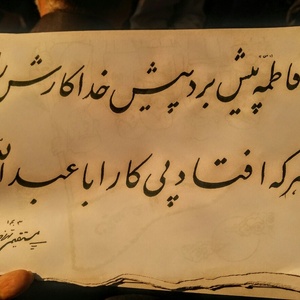 فاطمه پیش برد پیش خدا کارش را
هر که افتاد پی کار ابا عبدالله